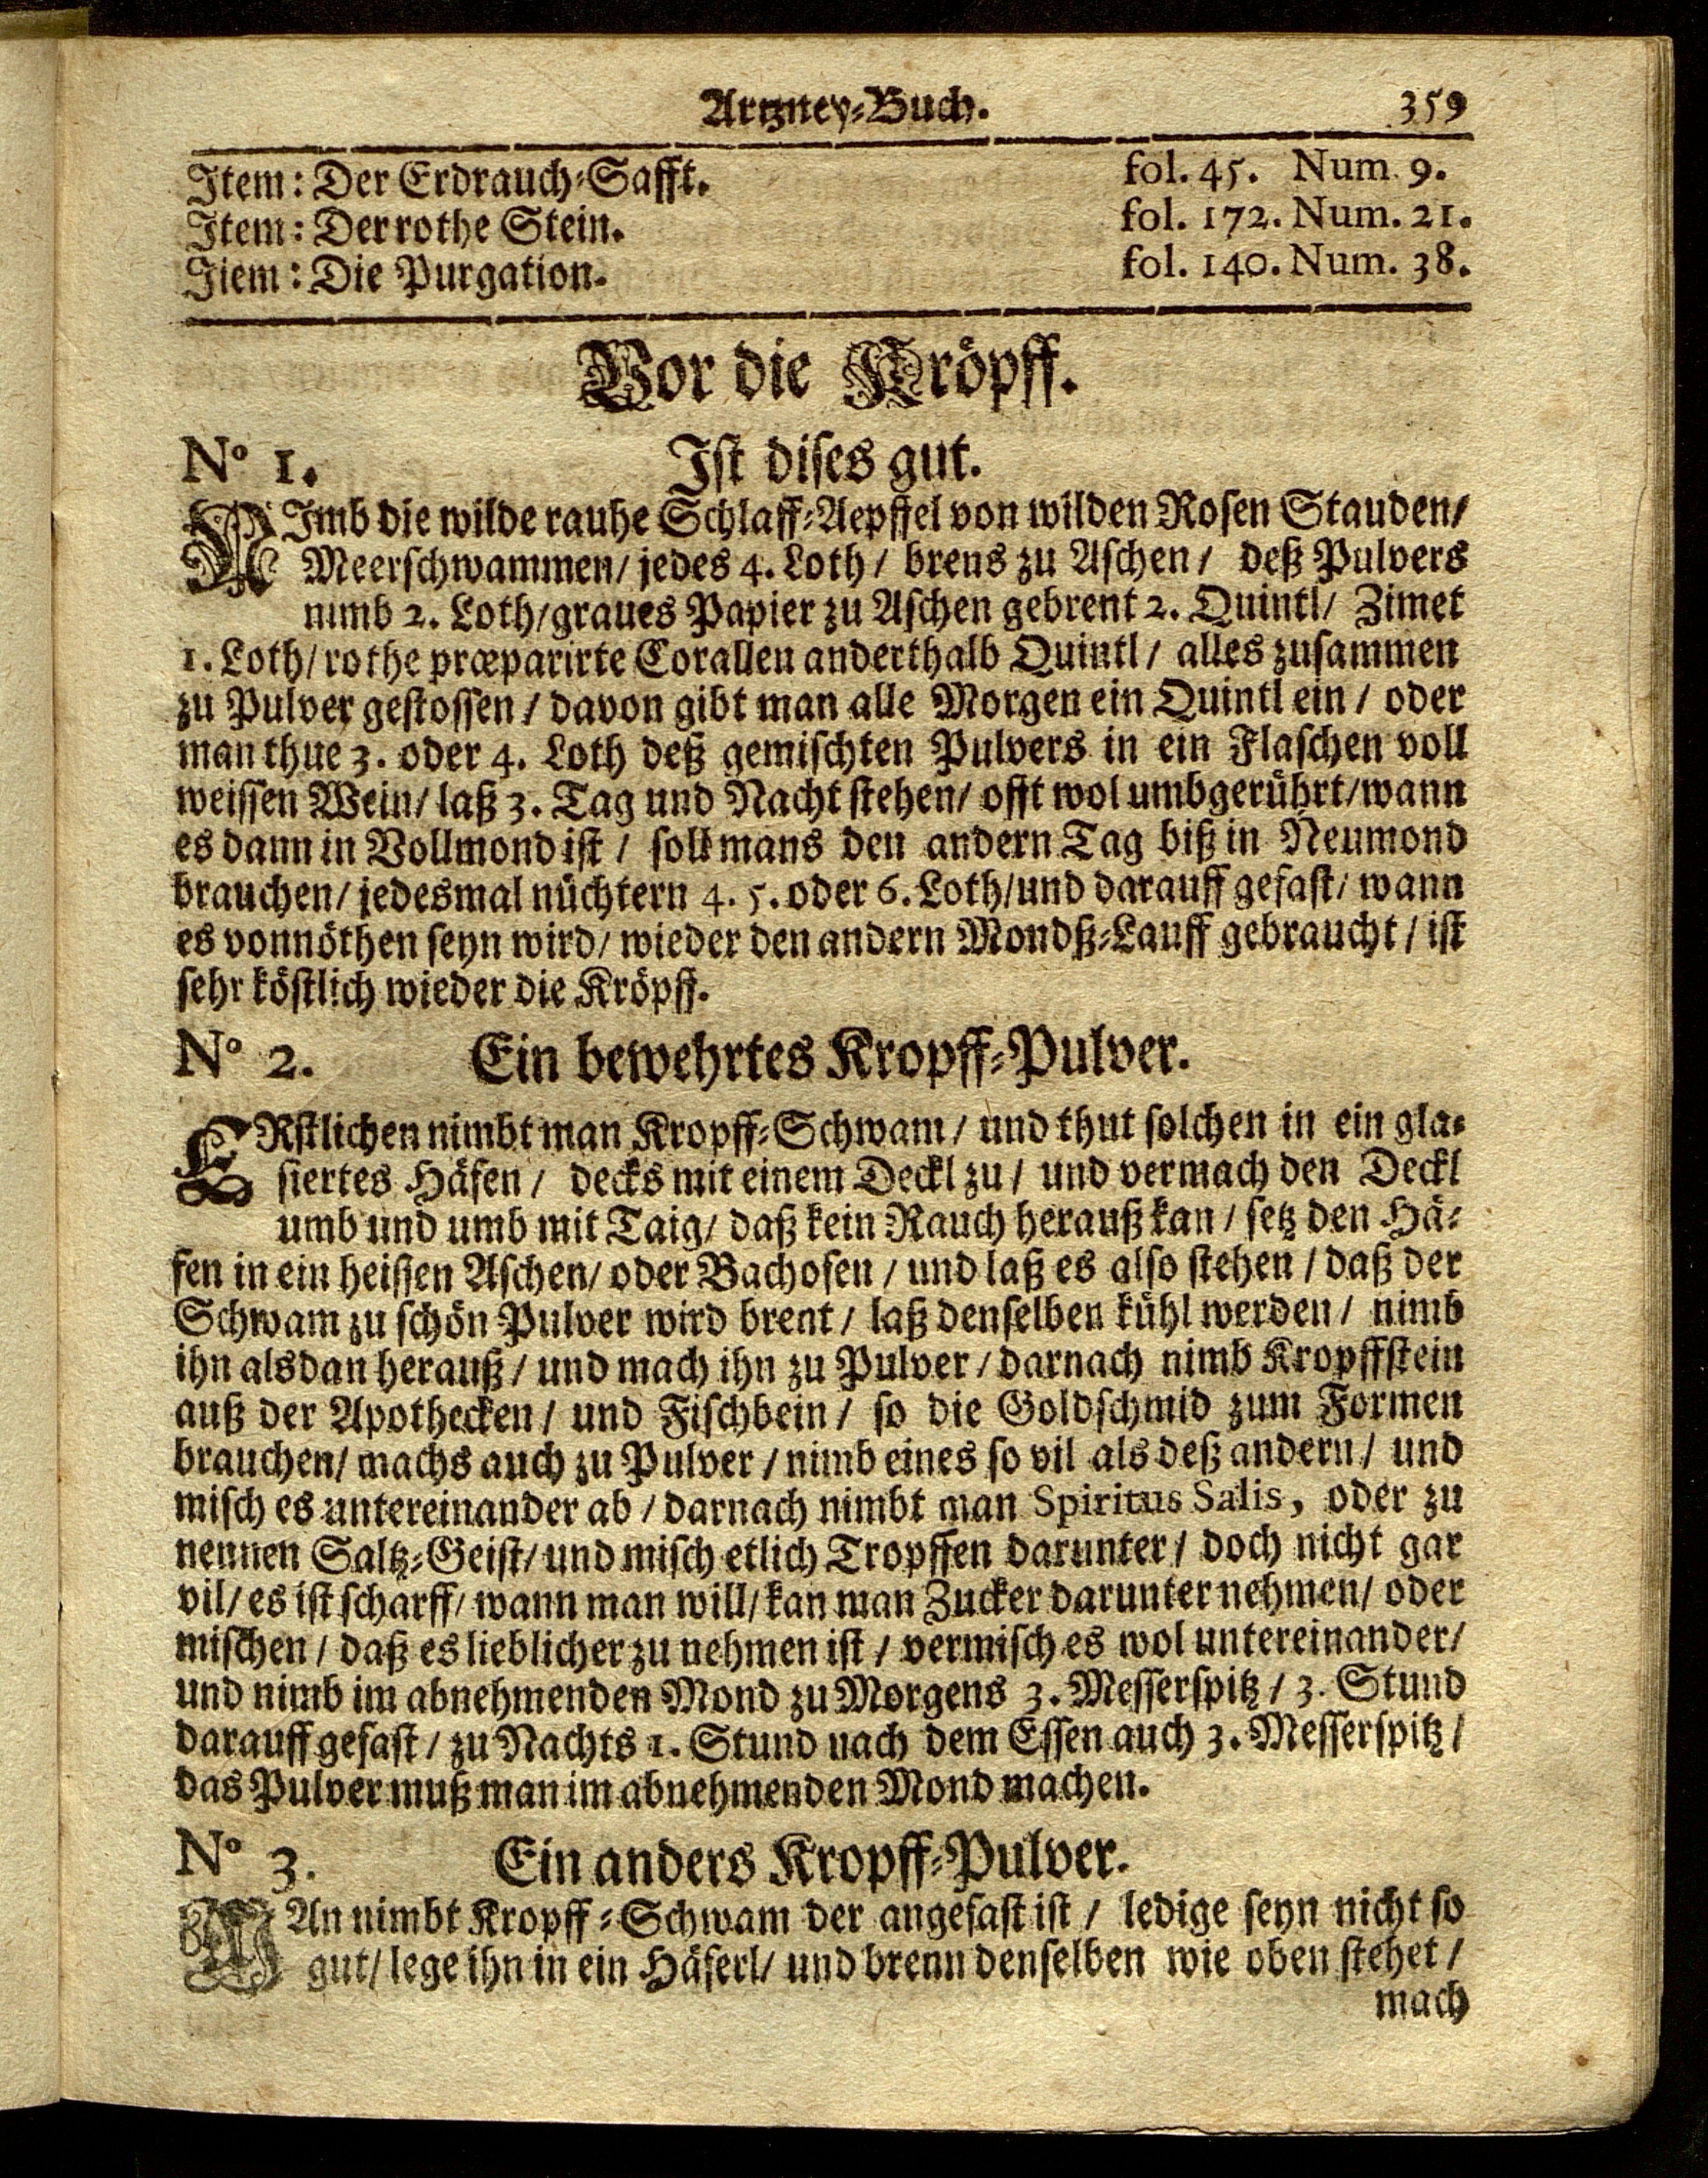 Artzney-Buch. 359
Item: Der Erdrauch-Safft. fol. 45. Num. 9.
Item: Der rothe Stein. fol. 172. Num. 21.
Jiem: Die Purgation. fol. 140. Num. 38.
Vor die Kröpff.
N° 1. Ist dises gut.
NImb die wilde rauhe Schlaff-Aepffel von wilden Rosen Stauden/
Meerschwammen/ jedes 4. Loth/ brens zu Aschen/ deß Pulvers
nimb 2. Loth/graues Papier zu Aschen gebrent 2. Quintl/ Zimet
1. Loth/ rothe præparirte Corallen anderthalb Quintl/ alles zusammen
zu Pulver gestossen/ davon gibt man alle Morgen ein Quintl ein/ oder
man thue 3. oder 4. Loth deß gemischten Pulvers in ein Flaschen voll
weissen Wein/ laß 3. Tag und Nacht stehen/ offt wol umbgerührt/wann
es dann in Vollmond ist/ soll mans den andern Tag biß in Neumond
brauchen/ jedesmal nüchtern 4. 5. oder 6. Loth/und darauff gefast/ wann
es vonnöthen seyn wird/ wieder den andern Mondß-Lauff gebraucht/ ist
sehr köstlich wieder die Kröpff.
N° 2. Ein bewehrtes Kropff-Pulver.
ERstlichen nimbt man Kropff-Schwam/ und thut solchen in ein gla-
siertes Häfen/ decks mit einem Deckl zu/ und vermach den Deckl
umb und umb mit Taig/ daß kein Rauch herauß kan/ setz den Hä-
fen in ein heissen Aschen/ oder Bachofen/ und laß es also stehen/ daß der
Schwam zu schön Pulver wird brent/ laß denselben kühl werden/ nimb
ihn alsdan herauß/ und mach ihn zu Pulver/ darnach nimb Kropffstein
auß der Apothecken/ und Fischbein/ so die Goldschmid zum Formen
brauchen/ machs auch zu Pulver/ nimb eines so vil als deß andern/ und
misch es untereinander ab/ darnach nimbt man Spiritus Salis, oder zu
nennen Saltz-Geist/ und misch etlich Tropffen darunter/ doch nicht gar
vil/ es ist scharff/ wann man will/ kan man Zucker darunter nehmen/ oder
mischen/ daß es lieblicher zu nehmen ist/ vermisch es wol untereinander/
und nimb im abnehmenden Mond zu Morgens 3. Messerspitz/ 3. Stund
darauff gefast/ zu Nachts 1. Stund nach dem Essen auch 3. Messerspitz/
das Pulver muß man im abnehmenden Mond machen.
N° 3. Ein anders Kropff-Pulver.
MAn nimbt Kropff-Schwam der angefast ist/ ledige seyn nicht so
gut/ lege ihn in ein Häferl/ und brenn denselben wie oben stehet/
mach